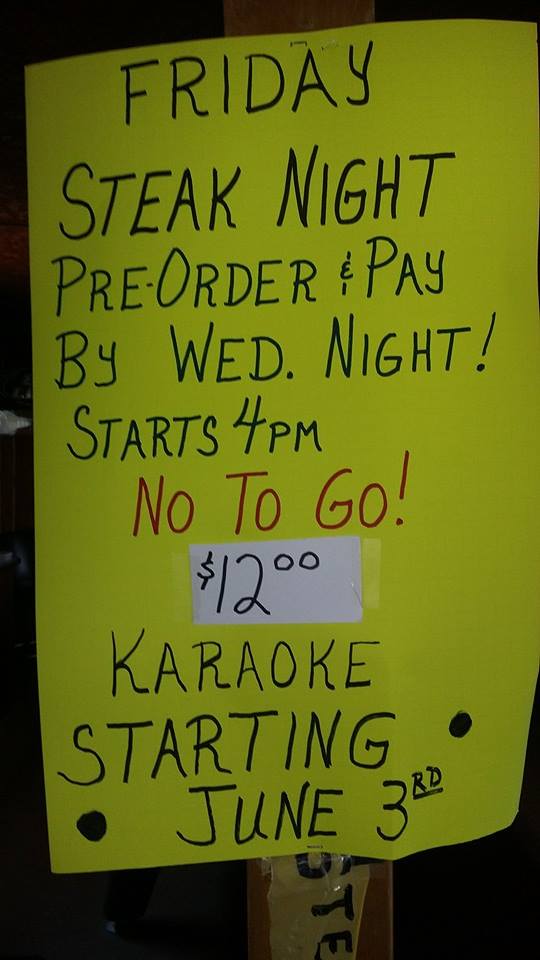 FRIDAY
STEAK NIGHT
PRE-ORDER & PAY
BY WED. NIGHT!
STARTS 4PM
NO TO GO!
$12⁰⁰
KARAOKE
STARTING
• JUNE 3RD •
STE